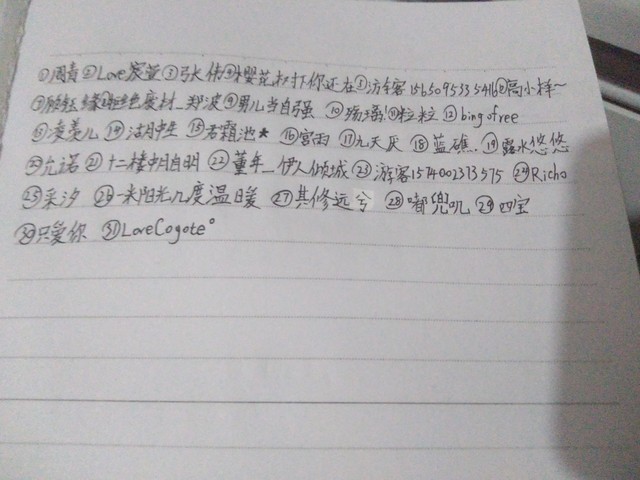 ①周青②Love宸萱③张伟④樱花树下你还在⑤游客1565095335416⑥高小样~
⑦ 缘⑧拒绝废材_郑波⑨男儿当自强 ⑩ 塥!⑪粒粒 ⑫bingofree
⑬凌羡儿 ⑭湖中生 ⑮君霜池★ ⑯宫雨 ⑰九天辰 ⑱蓝礁. ⑲露水悠悠
⑳允诺 ㉑十二楼中月自明 ㉒董年_伊人倾城 ㉓游客1574002373575 ㉔Richo
㉕采汐 ㉖一米阳光几度温暖 ㉗其修远兮 ㉘嘟兜叽 ㉙四宝
㉚只爱你 ㉛LoveCogote°